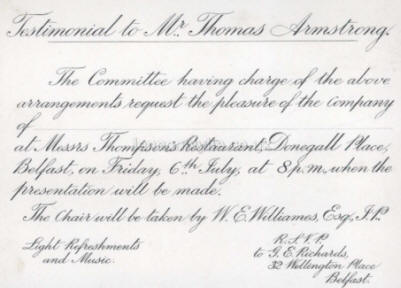 Testimonial to Mr. Thomas Armstrong.
The Committee having charge of the above
arrangements request the pleasure of the Company
of
at Messrs Thompson's Restaurant, Donegall Place,
Belfast, on Friday, 6th July, at 8 p.m., when the
presentation will be made.
The Chair will be taken by W. E. Williames, Esq., J.P.
Light Refreshments
and Music.
R.S.V.P.
to G. E. Richards,
32 Wellington Place
Belfast.